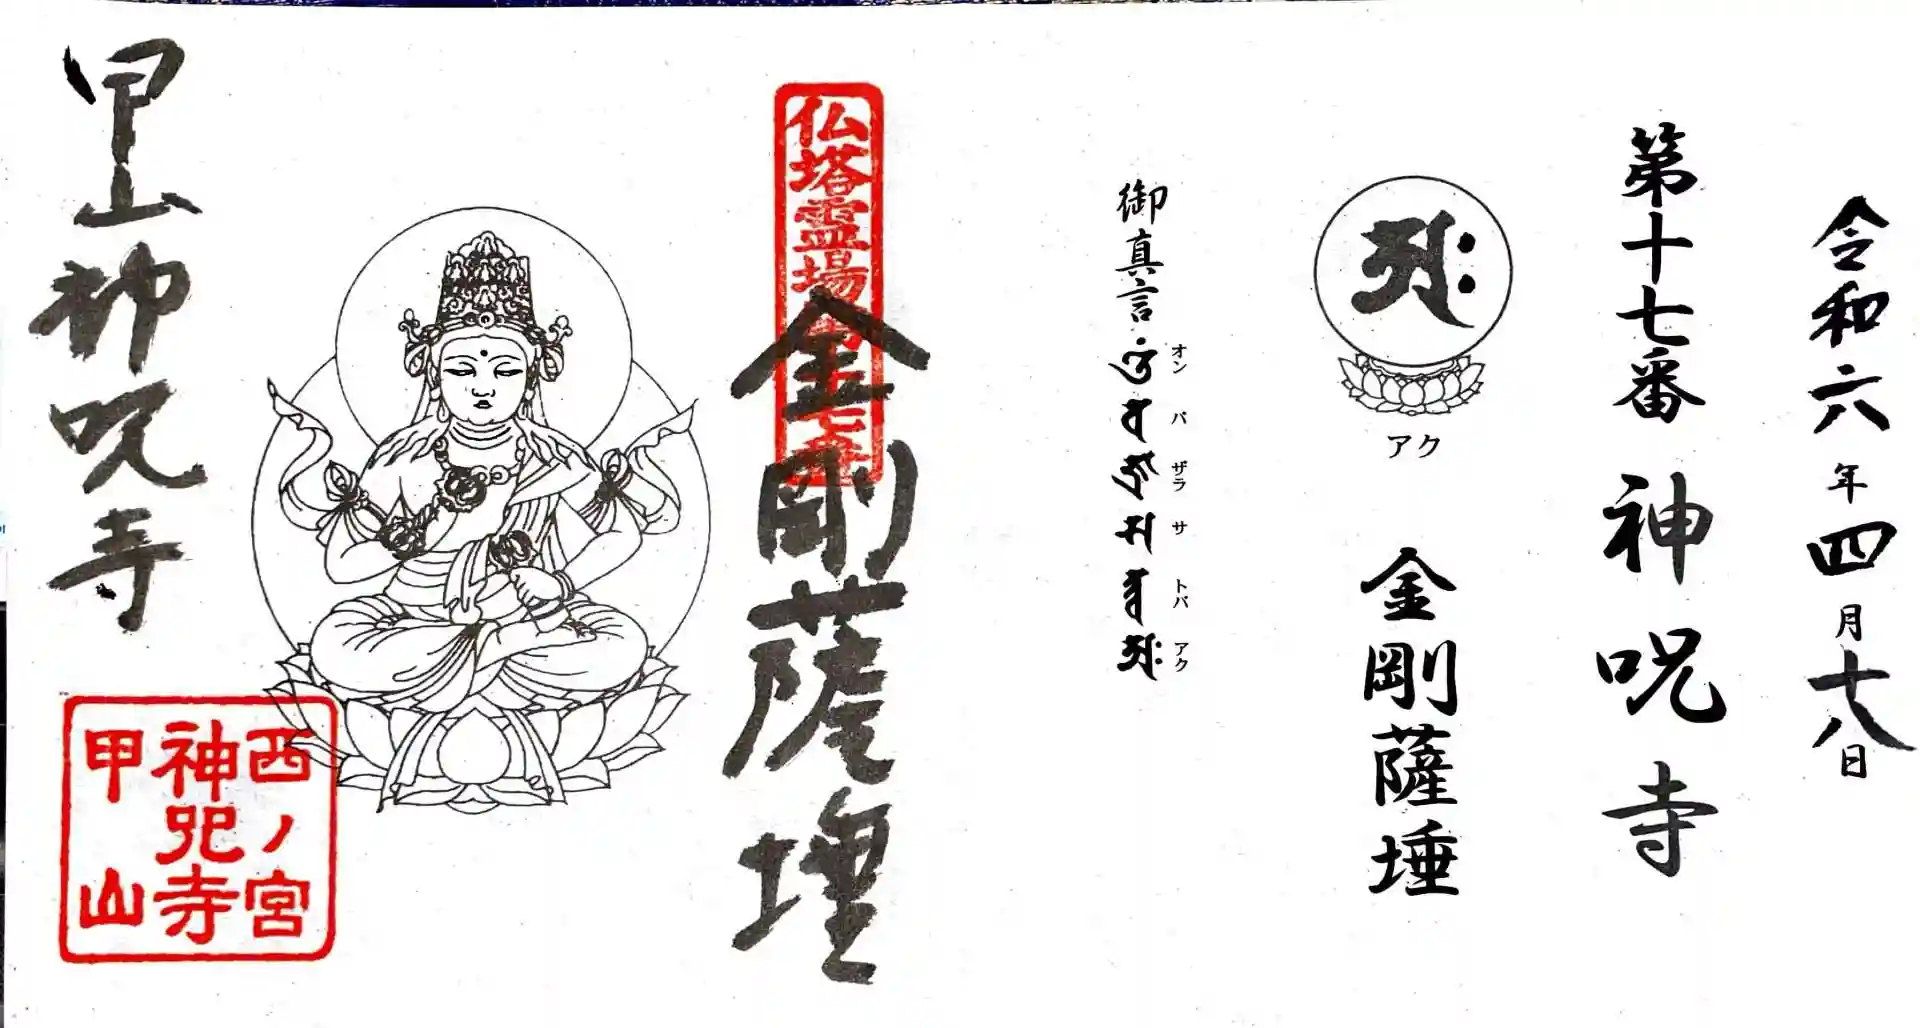 令和六年四月十八日
第十七番 神呪寺
アク
金剛薩埵
御真言
オン バ ザラ サ トバ アク
仏塔霊場
金剛薩埵
西ノ宮
神呪寺
甲山
甲山神呪寺